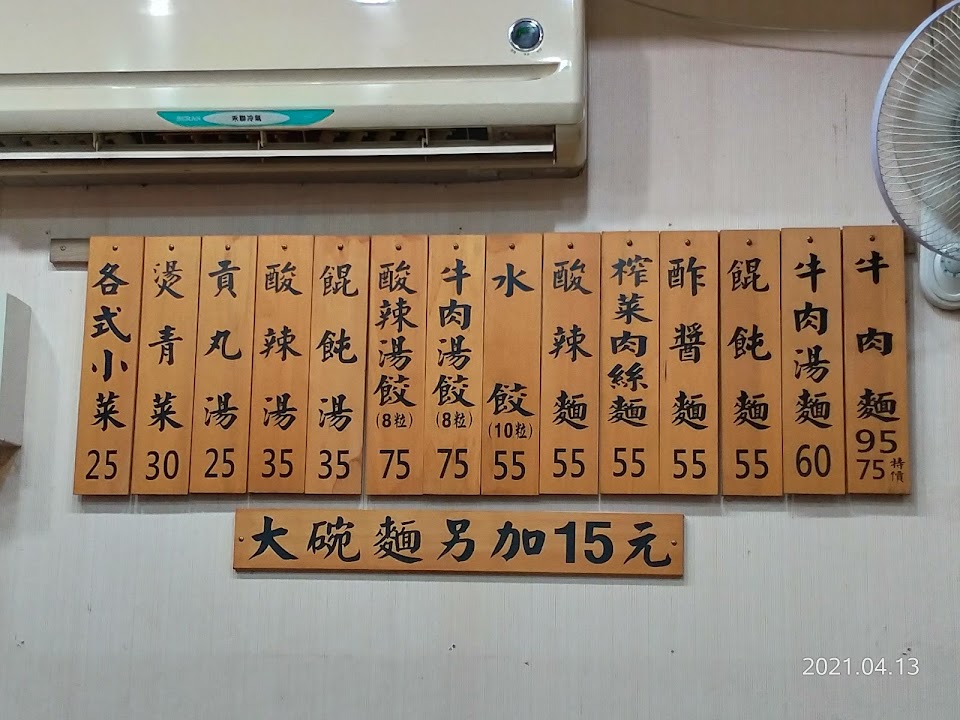 禾聯冷氣
牛肉麵 95 75 特價
牛肉湯麵 60
餛飩麵 55
酢醬麵 55
榨菜肉絲麵 55
酸辣麵 55
水餃 (10粒) 55
牛肉湯餃 (8粒) 75
酸辣湯餃 (8粒) 75
餛飩湯 35
酸辣湯 35
貢丸湯 25
燙青菜 30
各式小菜 25
大碗麵另加15元
2021.04.13